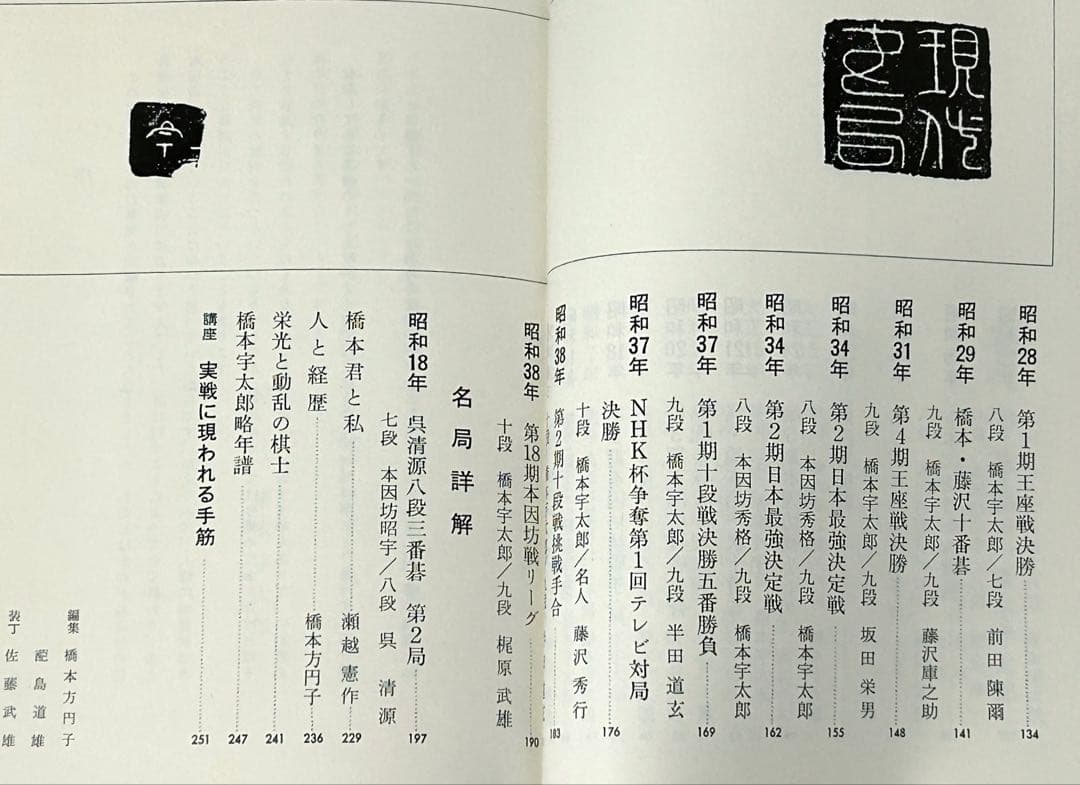 現代
昭和28年 第1期王座戦決勝 134
八段 橋本宇太郎／七段 前田陳爾
昭和29年 橋本・藤沢十番碁 141
九段 橋本宇太郎／九段 藤沢庫之助
昭和31年 第4期王座戦決勝 148
九段 橋本宇太郎／九段 坂田栄男
昭和34年 第2期日本最強決定戦 155
八段 本因坊秀格／九段 橋本宇太郎
昭和34年 第2期日本最強決定戦 162
八段 本因坊秀格／九段 橋本宇太郎
昭和37年 第1期十段戦決勝五番勝負 169
九段 橋本宇太郎／九段 半田道玄
昭和37年 NHK杯争奪第1回テレビ対局
決勝 176
十段 橋本宇太郎／名人 藤沢秀行
昭和38年 第2期十段戦挑戦手合 183
昭和38年 第18期本因坊戦リーグ 190
十段 橋本宇太郎／九段 梶原武雄
名局詳解
昭和18年 呉清源八段三番碁 第2局 197
七段 本因坊昭宇／八段 呉清源
橋本君と私 瀬越憲作 229
人と経歴 橋本方円子 236
栄光と動乱の棋士 241
橋本宇太郎略年譜 247
講座 実戦に現われる手筋 251
編集 橋本方円子
島道雄
装丁 佐藤武雄